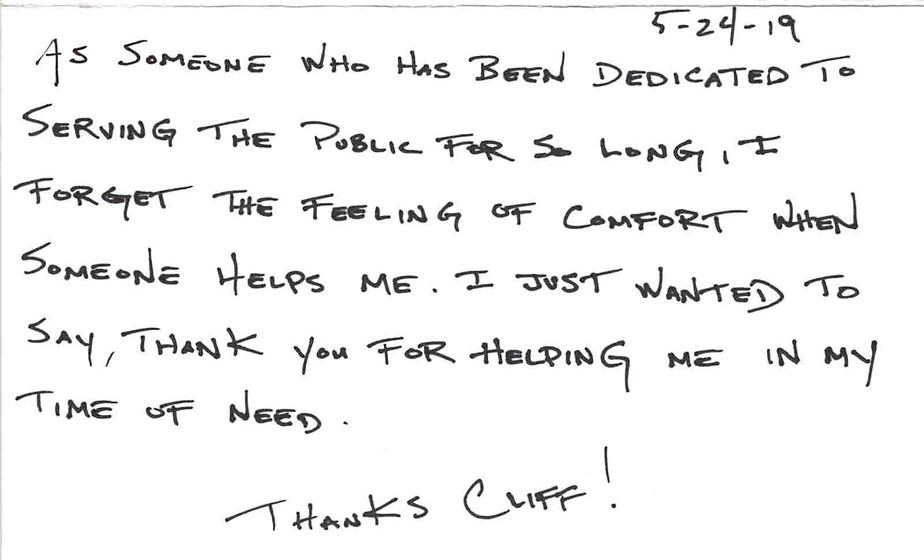 5-24-19
AS SOMEONE WHO HAS BEEN DEDICATED TO
SERVING THE PUBLIC FOR SO LONG, I
FORGET THE FEELING OF COMFORT WHEN
SOMEONE HELPS ME. I JUST WANTED TO
SAY, THANK YOU FOR HELPING ME IN MY
TIME OF NEED.
THANKS CLIFF!